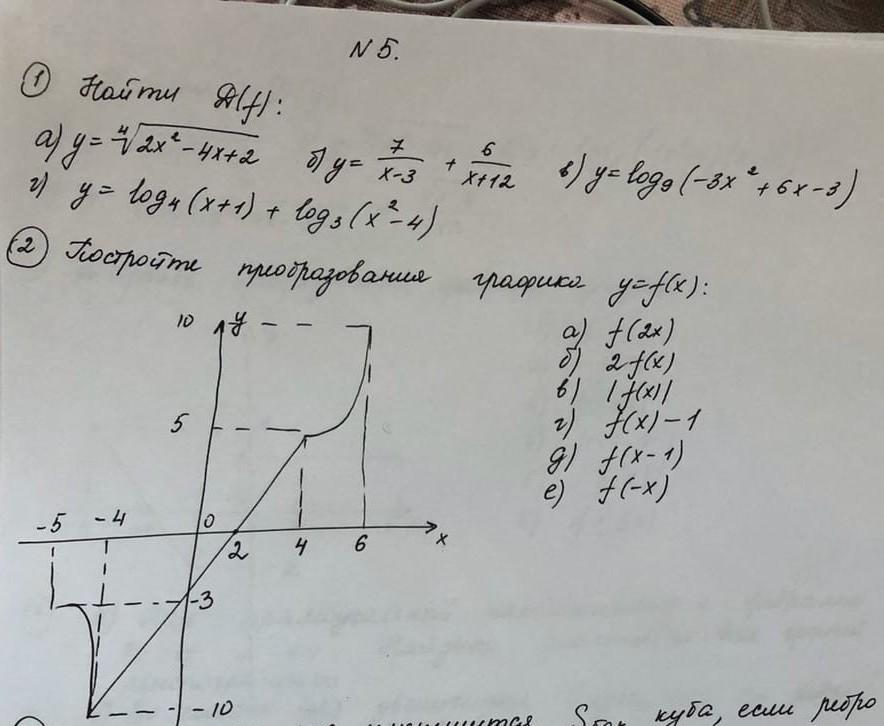 N 5.
① Найти D(f):
а) y = ∜(2x² - 4x + 2)   б) y = 7/(x-3) + 6/(x+12)   в) y = log₉(-3x² + 6x - 3)
г) y = log₄(x+1) + log₃(x² - 4)
② Постройте преобразования графика y = f(x):
а) f(2x)
б) 2f(x)
в) |f(x)|
г) f(x) - 1
д) f(x-1)
е) f(-x)
10 y
5
-5 -4 0 2 4 6 x
-3
-10
Sпов куба, если ребро